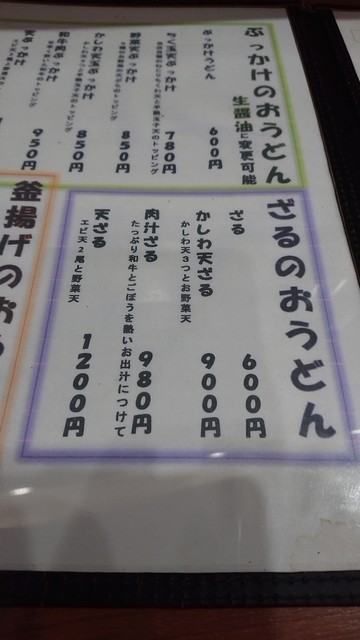 ぶっかけのおうどん
生醤油に変更可能
ぶっかけうどん
600円
ちく玉天ぶっかけ
780円
野菜天ぶっかけ
850円
かしわ天玉ぶっかけ
850円
和牛肉ぶっかけ
950円
ざるのおうどん
ざる
600円
かしわ天ざる
かしわ天3つとお野菜天
900円
肉汁ざる
たっぷり和牛とごぼうを熱いお出汁につけて
980円
天ざる
エビ天2尾と野菜天
1200円
釜揚げのおう